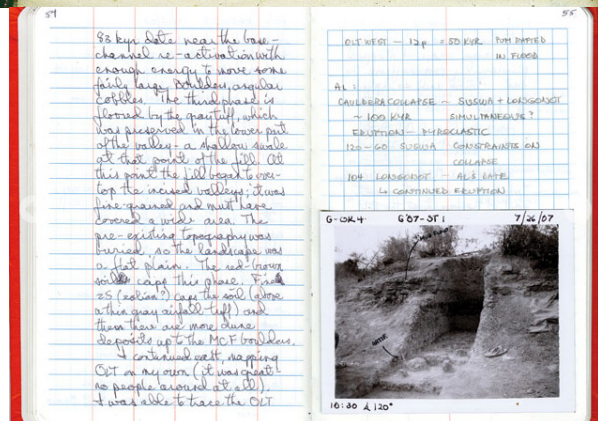 54
83 kyr date near the base –
channel re-activation with
enough energy to move some
fairly large boulders, angular
cobbles. The third phase is
floored by the gray tuff, which
was preserved in the lower part
of the valley – a shallow swale
at that point of the fill. At
this point the fill began to over-
top the incised valleys; it was
fine-grained and must have
covered a wide area. The
pre-existing topography was
buried, so the landscape was
a flat plain. The red-brown
soil caps this phase. Fine
zs (eolian?) caps the soil (above
a thin gray airfall tuff) and
then there are more dune
deposits up to the MCF boulders.
I continued east, mapping
OLT on my own (it was great –
no people around at all).
I was able to trace the OLT
55
OLT WEST – 12p = 50 KYR PUM RAFTED
IN FLOOD
AL:
CAULDERA COLLAPSE – SUSWA + LONGONOT
~ 100 KYR SIMULTANEOUS?
ERUPTION – PYROCLASTIC
120–60 SUSWA CONSTRAINTS ON
COLLAPSE
104 LONGONOT – AL'S DATE
↳ CONTINUED ERUPTION
G'07-ST 1 7/26/07
10:30 120°